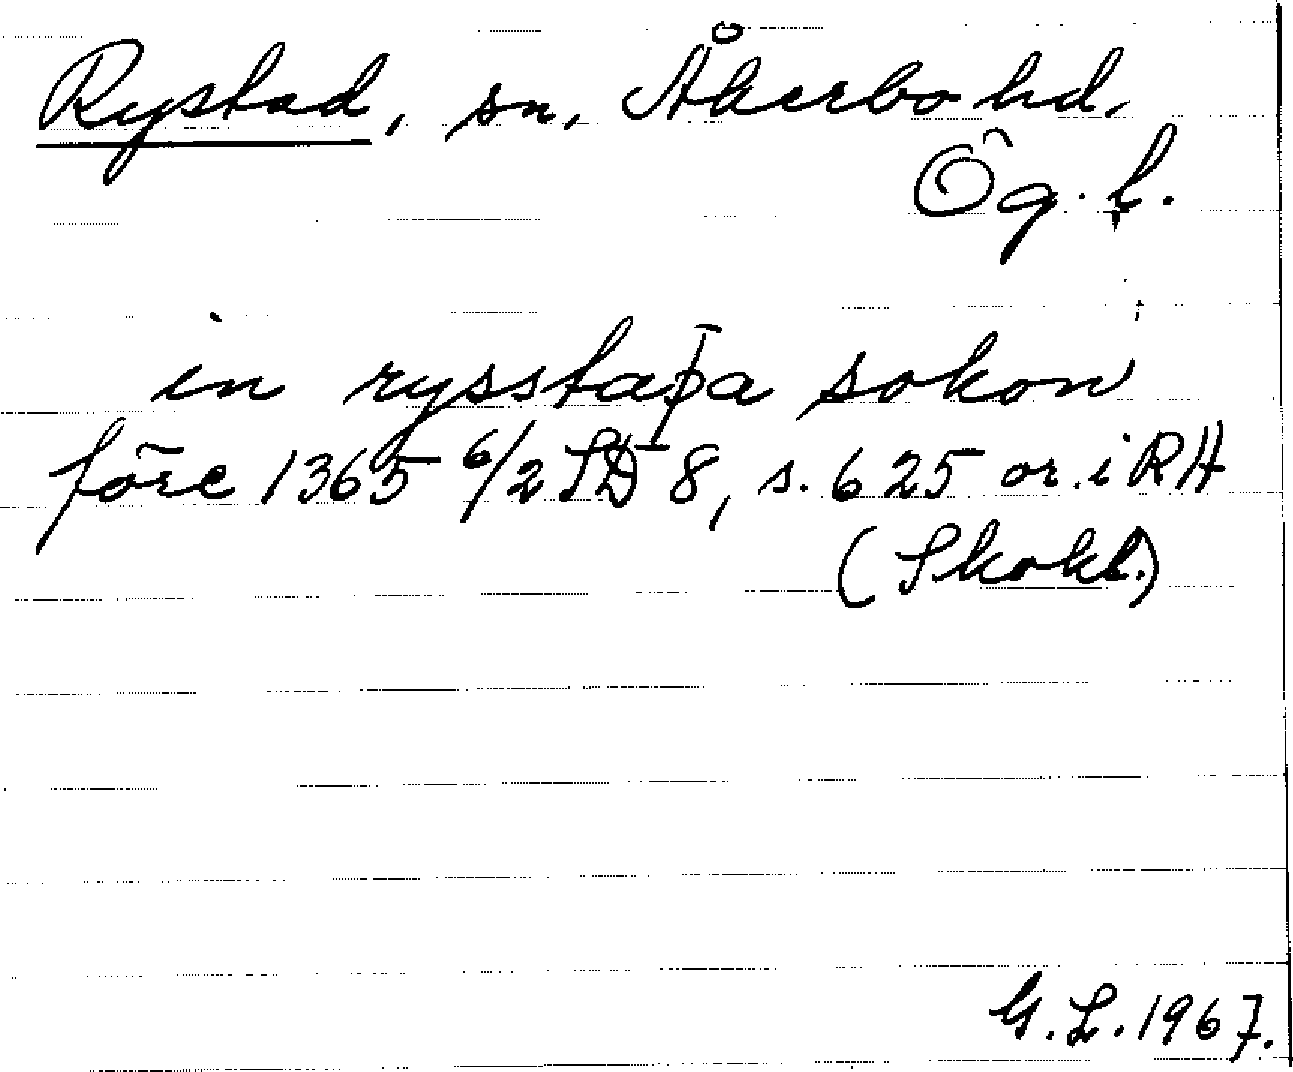 Rystad, sn, Åkerbo hd.
Ög. l.
in rysstaþa sokon
före 1365 6/2 SD 8, s. 625 or. i RA
(Skokl.)
G. L. 1967.